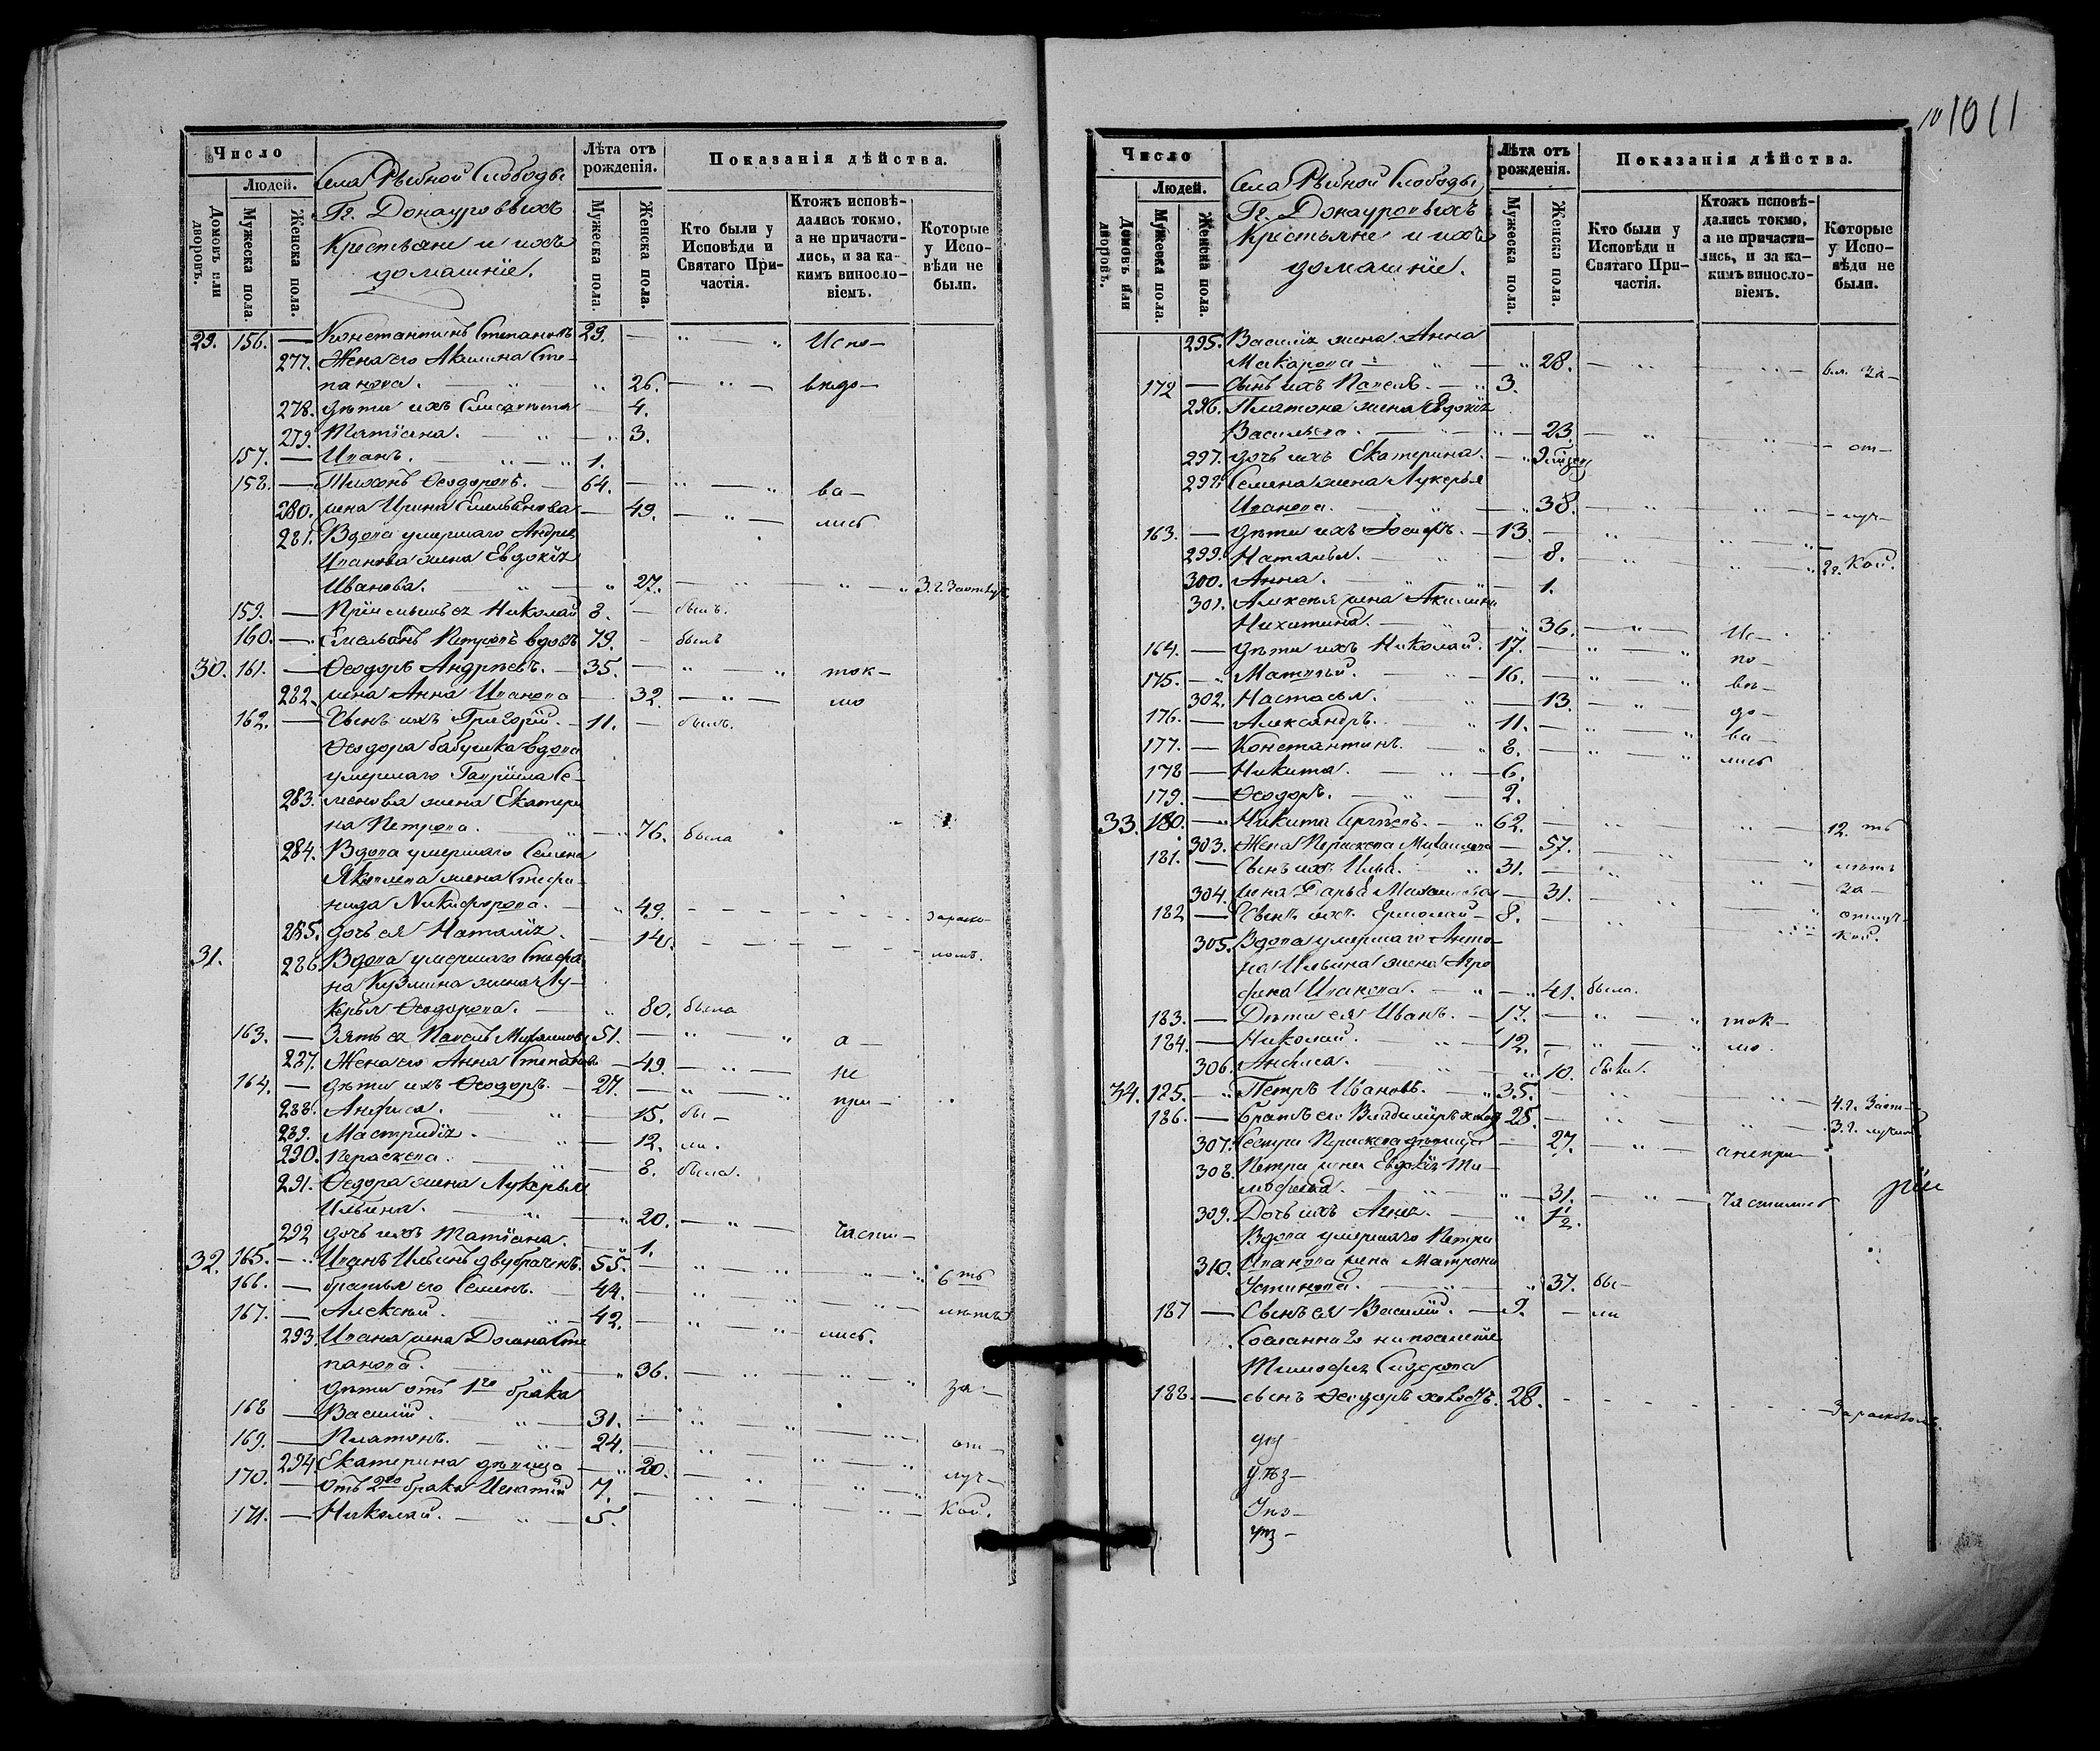 Число
Людей.
Домовъ или дворовъ.
Мужеска пола.
Женска пола.
Села Рыбной Слободы
Гг. Донауровыхъ
Крестьяне и ихъ
домашніе.
Лѣта отъ рожденія.
Мужеска пола
Женска пола.
Показанія дѣйства.
Кто были у Исповѣди и Святаго Причастія.
Ктожъ исповѣдались токмо, а не причастились, и за какимъ винословіемъ.
Которые у Исповѣди не были.
29. 156. — Константинъ Степановъ 29. — Испо—
277. Жена его Акилина Сте-
панова. 26. вѣдо—
278. дѣти ихъ Елисавета 4.
279. Татіана. 3.
157. — Иванъ. 1.
158. — Тихонъ Ѳеодоровъ. 64. ва—
280. жена Ирина Емельянова 49. лись
281. Вдова умершаго Андрея
Иванова жена Евдокія
Иванова. 27.
159. — Пріемышъ ея Николай 8. — былъ.
160. — Емельянъ Петровъ вдовъ 79. — былъ
30. 161. — Ѳеодоръ Андреевъ. 35. ток—
282. жена Анна Иванова 32. мо
162. — Сынъ ихъ Григорій. 11. — былъ.
Ѳеодора бабушка вдова
умершаго Гавріила Се-
283. менова жена Екатери
на Петрова. 76. была
284. Вдова умершаго Семена
Яковлева жена Стефа-
нида Никифорова. 49. зараско-
285. дочь ея Наталія. 14. ломъ.
31. 286. Вдова умершаго Стефа
на Кузмина жена Лу-
керья Ѳеодорова. 80. была
163. — Зять ея Павелъ Михаиловъ 51. а—
287. Жена его Анна Степанова 49. не
164. — дѣти ихъ Ѳеодоръ. 27. при—
288. Анфиса. 15. бы—
289. Мастридія. 12. ли.
290. Параскева. 8. была.
291. Ѳедора жена Лукерья
Ильина. 20. части—
292 дочь ихъ Татіана. 1.
32. 165. — Иванъ Ильинъ двубраченъ. 55. 6ть
166. — братья его Семенъ. 44. лѣтъ
167. — Алексѣй. 42.
293. Ивана жена Домна Сте лись.
панова. 36. за—
дѣти отъ 1го брака
168 — Василій. 31.
169. — Платонъ. 24. от—
294. Екатерина дѣвица 20. луч—
170. — отъ 2го брака Игнатій 7.
171. — Николай. 5. кой.
10 1011
Число
Людей.
Домовъ или дворовъ.
Мужеска пола.
Женска пола.
Села Рыбной Слободы
Гг. Донауровыхъ
Крестьяне и ихъ
домашніе.
Лѣта отъ рожденія.
Мужеска пола.
Женска пола.
Показанія дѣйства.
Кто были у Исповѣди и Святаго Причастія.
Ктожъ исповѣдались токмо, а не причастились, и за какимъ винословіемъ.
Которые у Исповѣди не были.
295. Василія жена Анна
Макарова 28. за—
172 — Сынъ ихъ Павелъ. 3.
296. Платона жена Евдокія
Васильева. 23. от—
297. дочь ихъ Екатерина.
298. Семена жена Лукерья
Иванова. 38. луч—
163. — дѣти ихъ Іосифъ. 13.
299. Наталья. 8. кой.
300. Анна. 1.
301. Алексѣя жена Акилина
Никитина. 36. Ис—
164. — дѣти ихъ Николай. 17. по—
175. — Матвѣй. 16. вѣ—
302. Настасья. 13. до—
176. — Александръ. 11. ва—
177. — Константинъ. 8. лись
178 — Никита. 6.
179. — Ѳеодоръ. 2.
33. 180. — Никита Сергѣевъ. 62. 12. ть
303. Жена Параскева Михаилова 57. лѣтъ
181. — Сынъ ихъ Илья. 31. за—
304. жена Дарья Михаилова 31. отлуч-
182 — Сынъ ихъ Ермолай 8. кой.
305. Вдова умершаго Анто-
на Ильина жена Агра
фена Иванова. 41. была.
183. — Дѣти ея Иванъ. 17. ток—
184. — Николай. 12. мо.
306. Анфиса. 10. была.
34. 185. — Петръ Ивановъ. 35. 4. г. За от—
186. — братъ его Владиміръ холос 28. 3. г. лучк
307. сестра Параскева дѣвица 27. а не при—
308. Петра жена Евдокія Ти-
мофеева. 31. частились
309. Дочь ихъ Анна. 1½.
Вдова умершаго Петра
310. Иванова жена Матрона
Устинова. 37. бы—
187 — Сынъ ея Василій. 9. — ли
Сосланнаго на поселеніе
Тимофея Сидорова
188. — сынъ Ѳеодоръ холостъ. 28. За расколомъ.